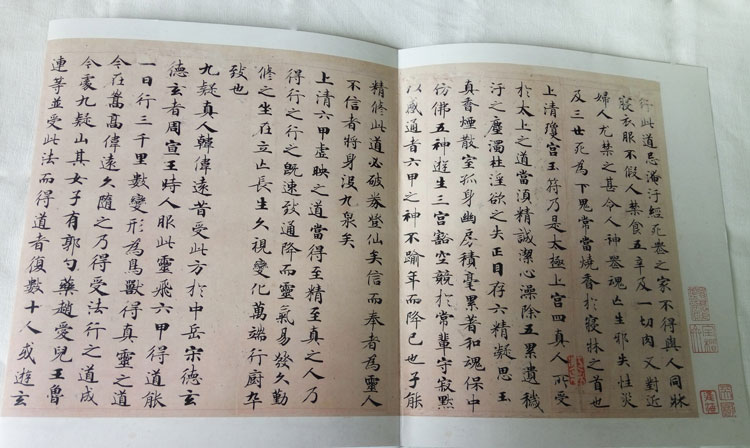 行此道忌淹汙經死喪之家不得與人同牀
寢衣服不假人禁食五辛及一切肉又對近
婦人尤禁之甚令人神喪魂亡生邪失性災
及三世死為下鬼常當燒香於寢牀之首也
上清瓊宮玉符乃是太極上宮四真人所受
於太上之道當須精誠潔心澡除五累遺穢
汙之塵濁杜淫欲之失正目存六精凝思玉
真香煙散室孤身幽房積毫累著和魂保中
仿佛五神遊生三宮豁空競於常輩守寂默
以感通者六甲之神不踰年而降已也子能
精修此道必破券登仙矣信而奉者為靈人
不信者將身沒九泉矣
上清六甲虛映之道當得至精至真之人乃
得行之行之既速致通降而靈氣易發久勤
修之坐在立亡長生久視變化萬端行廚卒
致也
九疑真人韓偉遠昔受此方於中岳宗德玄
德玄者周宣王時人服此靈飛六甲得道能
一日行三千里數變形為鳥獸得真靈之道
今在嵩高偉遠久隨之乃得受法行之道成
今處九疑山其女子有郭勺藥趙愛兒王魯
連等並受此法而得道者復數十人或遊玄